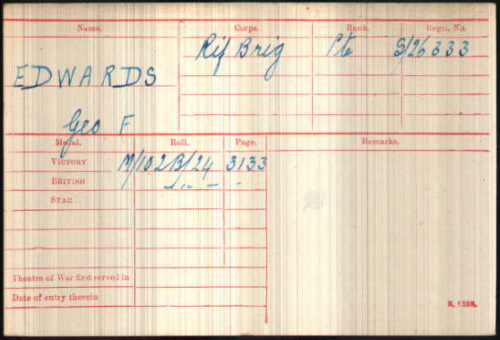 Name. Corps. Rank. Regtl. No.
EDWARDS Rif Brig Pte S/26333
Geo F
Medal. Roll. Page. Remarks.
VICTORY M/102B/24 3133
BRITISH -„- -„-
STAR
Theatre of War first served in
Date of entry therein
K. 1380.